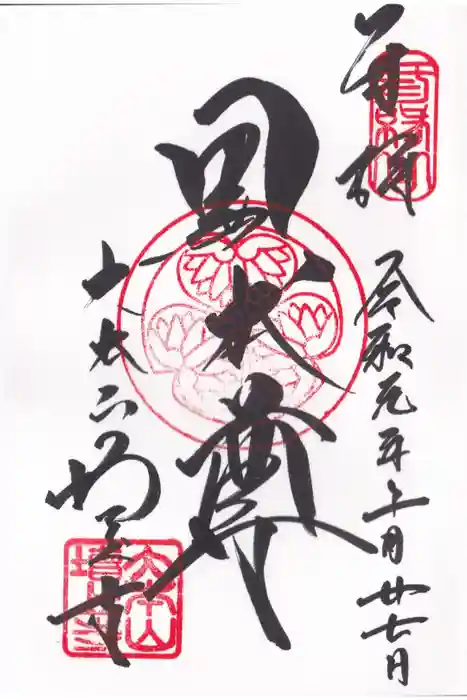 奉拝
令和元年十一月廿七日
黒本尊
大本山
増上寺
大本山
増上寺